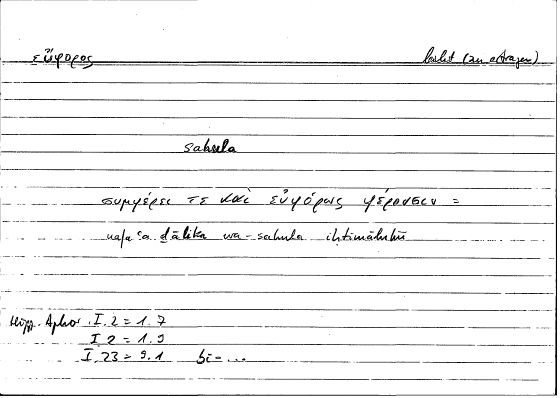 εὔφορος leicht (zu ertragen)
sahula
συμφέρει τε καὶ εὐφόρως φέρουσιν =
nafaʿa ḏālika wa-sahula iḥtimāluhū
Hipp. Aphor. I.2 = 1.7
I 2 = 1.9
I. 23 = 9.1 bi- ...